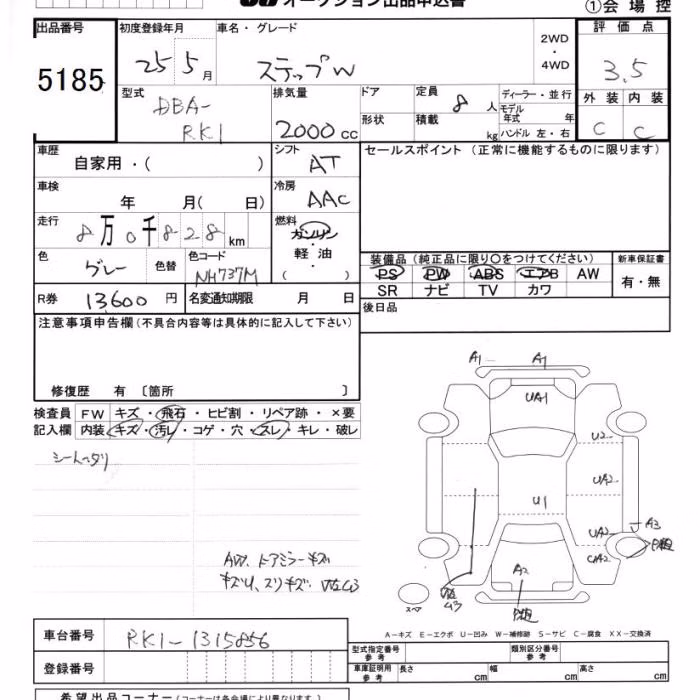 オークション出品申込書
①会場控
出品番号 初度登録年月 車名・グレード 評価点
5185 25 5月 ステップW 2WD・4WD 3.5
型式 排気量 ドア 定員 ディーラー・並行 外装 内装
DBA-RK1 2000cc 形状 8人 モデル年式 年 C C
積載 kg ハンドル 左・右
車歴 シフト セールスポイント (正常に機能するものに限ります)
自家用・( ) AT
車検 冷房
年 月( 日) AAC
走行 燃料
8万0千828km ガソリン・軽油・( )
色 色替 色コード
グレー NH737M
装備品 (純正品に限り○をつけてください) 新車保証書
PS PW ABS エアB AW 有・無
SR ナビ TV カワ
R券 13,600円 名変通知期限 月 日
後日品
注意事項申告欄(不具合内容等は具体的に記入して下さい)
修復歴 有 〔箇所 〕
検査員 FW キズ・飛石・ヒビ割・リペア跡・×要
記入欄 内装 キズ・汚レ・コゲ・穴・スレ・キレ・破レ
シートヘタリ
A1 A1
UA1
U2
UA2
U1
UA2 A3
A2
スペア
AW、ドアミラーキズ
A-キズ E-エクボ U-凹み W-補修跡 S-サビ C-腐食 XX-交換済
車台番号 RK1-1315856
型式指定番号 参考 類別区分番号 参考
登録番号
車庫証明用 参考 長さ cm 幅 cm 高さ cm
希望出品コーナー(コーナーは各会場により異なります)